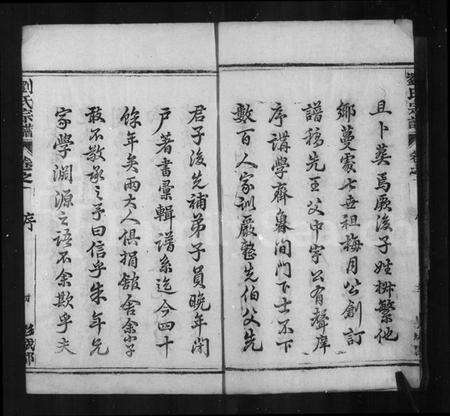 劉氏宗譜
且卜葵焉厥後子姓掛繁他
鄉蔓處七吾祖梅月公創訂
譜稿先王父中字公有聲庠
序講學齊魯間門下士不下
數百人家訓嚴整先伯父先
君子後先補弟子員晚年閉
戶著書彙輯譜系迄今四十
餘年矣兩大人俱捐舘舍余小子
敢不敬承之予曰信乎朱年兄
家學淵源之語不余欺乎夫
劉氏宗譜
卷之一
序